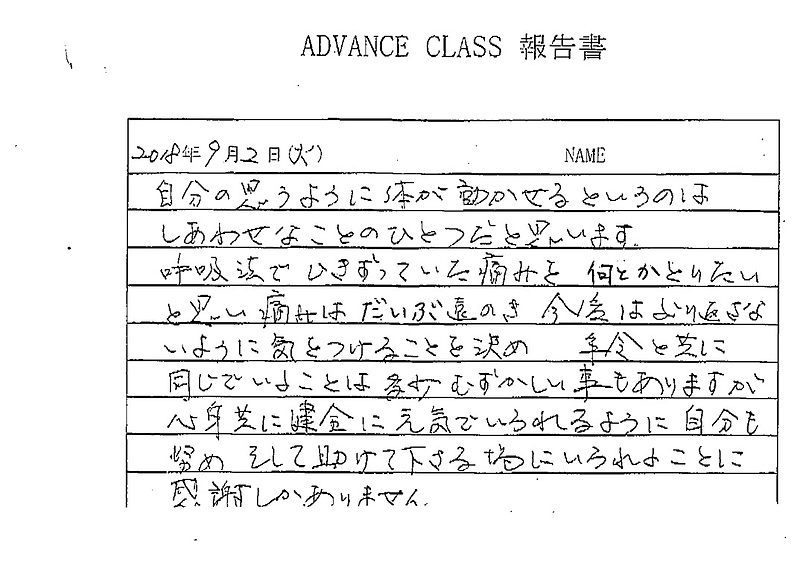 ADVANCE CLASS 報告書
2018年9月2日(火) NAME
自分の思うように体が動かせるというのは
しあわせなことのひとつだと思います.
呼吸法でひきずっていた痛みを 何とかとりたい
と思い痛みはだいぶ遠のき 今後はぶり返さな
いように気をつけることを決め 年令と共に
同じでいることは多少むずかしい事もありますが
心身共に健全に元気でいられるように自分も
努め そして助けて下さる場にいられることに
感謝しかありません.